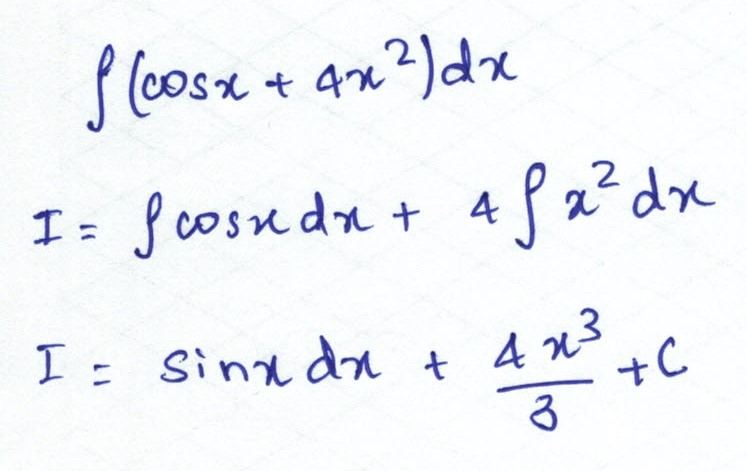 ∫(cosx + 4x²)dx
I = ∫cosx dx + 4∫x² dx
I = sinx dx + 4x³/3 + C